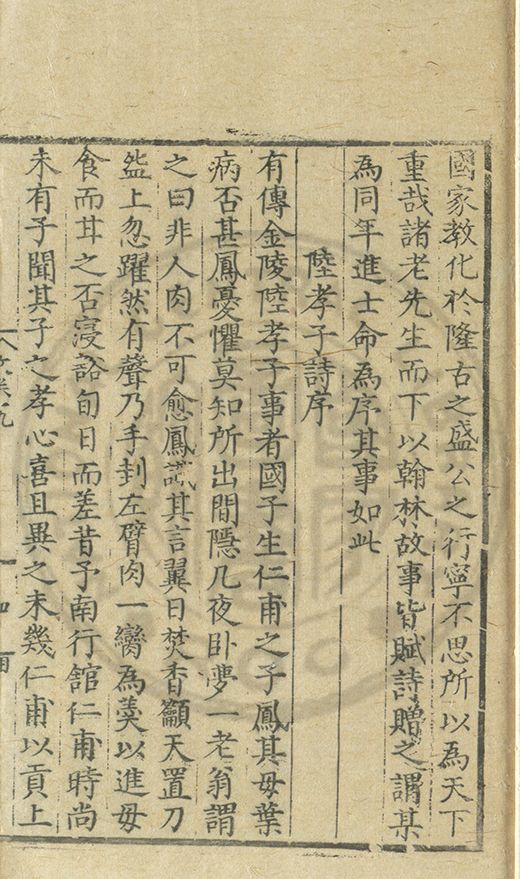 國家教化於隆古之盛公之行寧不思所以為天下
重哉諸老先生而下以翰林故事皆賦詩贈之謂某
為同年進士命為序其事如此
陸孝子詩序
有傳金陵陸孝子事者國子生仁甫之子鳳其毋葉
病否甚鳳憂懼莫知所出間隱几夜卧夢一老翁謂
之曰非人肉不可愈鳳識其言翼日焚香籲天置刀
盌上忽躍然有聲乃手封左臂肉一臠為羹以進毋
食而甘之否寖谽旬日而差昔予南行館仁甫時尚
未有子聞其子之孝心喜且異之未幾仁甫以貢上